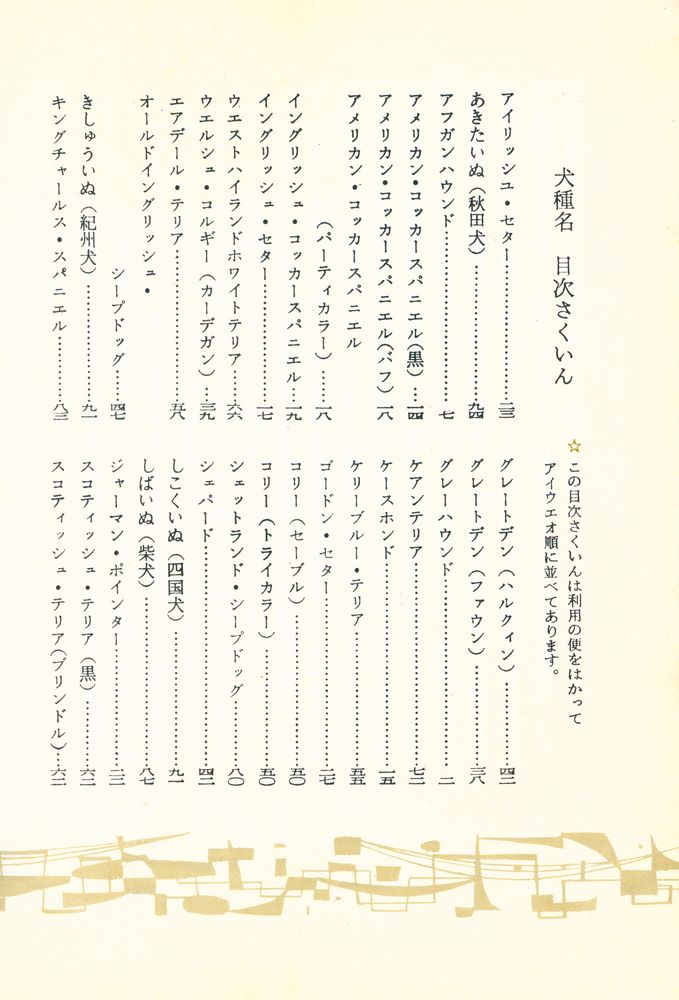 犬種名　目次さくいん
☆この目次さくいんは利用の便をはかって
アイウエオ順に並べてあります。
アイリッシュ・セター……二三
あきたいぬ（秋田犬）……九四
アフガンハウンド……七
アメリカン・コッカースパニエル（黒）…一四
アメリカン・コッカースパニエル（バフ）一八
アメリカン・コッカースパニエル
（パーティカラー）……一八
イングリッシュ・コッカースパニエル…一九
イングリッシュ・セター……一七
ウエストハイランドホワイトテリア……六六
ウエルシュ・コルギー（カーデガン）…三九
エアデール・テリア……五八
オールドイングリッシュ・
シープドッグ……四七
きしゅういぬ（紀州犬）……九一
キングチャールス・スパニエル……八三
グレートデン（ハルクィン）……四二
グレートデン（ファウン）……三八
グレーハウンド……二
ケアンテリア……七二
ケースホンド……一五
ケリーブルー・テリア……五五
ゴードン・セター……二七
コリー（セーブル）……五〇
コリー（トライカラー）……五〇
シェットランド・シープドッグ……八〇
シェパード……四二
しこくいぬ（四国犬）……九一
しばいぬ（柴犬）……八七
ジャーマン・ポインター……二二
スコティッシュ・テリア（黒）……六二
スコティッシュ・テリア（ブリンドル）…六二